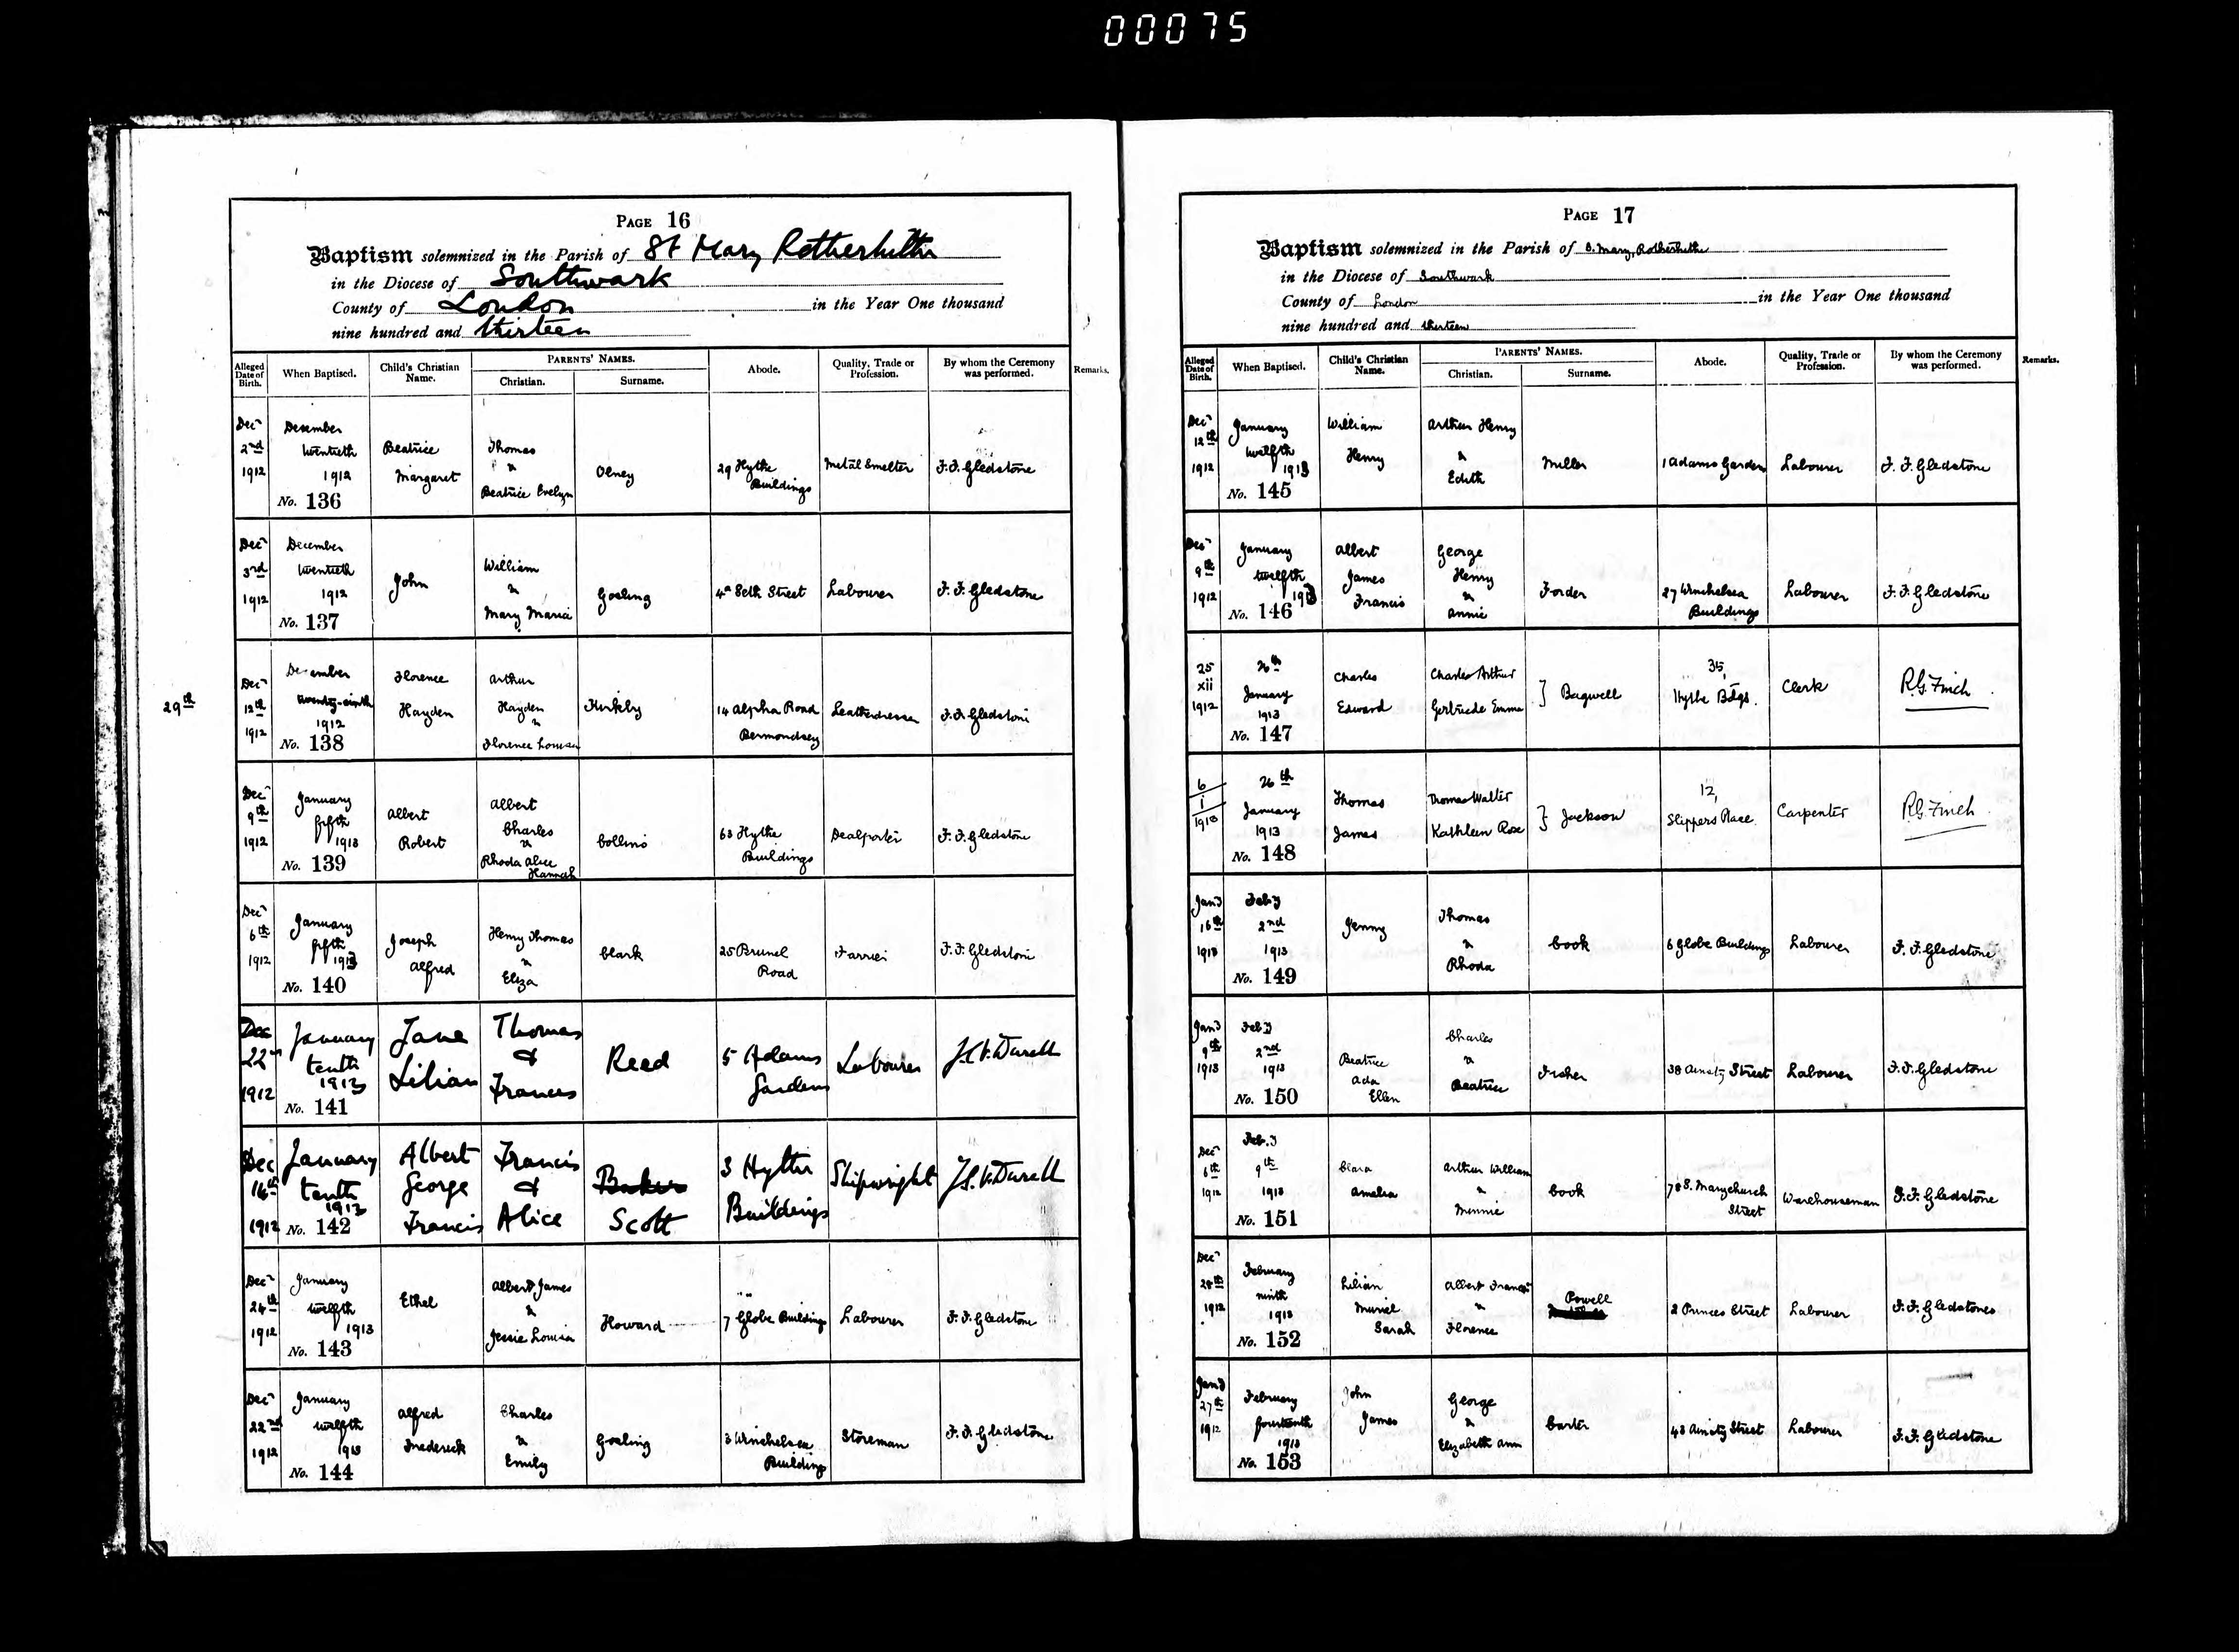 00075
PAGE 16
Baptism solemnized in the Parish of St Mary Rotherhithe
in the Diocese of Southwark
County of London in the Year One thousand
nine hundred and thirteen
Alleged Date of Birth. When Baptised. Child's Christian Name. PARENTS' NAMES. Christian. Surname. Abode. Quality, Trade or Profession. By whom the Ceremony was performed. Remarks.
Decr 2nd 1912 December twentieth 1912 No. 136 Beatrice Margaret Thomas & Beatrice Evelyn Olney 29 Hythe Buildings Metal Smelter F.F. Gledstone
Decr 3rd 1912 December twentieth 1912 No. 137 John William & Mary Maria Gosling 4a Seth Street Labourer F.F. Gledstone
29th
Decr 12th 1912 December twenty-ninth 1912 No. 138 Florence Hayden Arthur Hayden & Florence Louisa Kirkby 14 Alpha Road Bermondsey Leatherdresser F.F. Gledstone
Decr 9th 1912 January fifth 1913 No. 139 Albert Robert Albert Charles & Rhoda Alice Hannah Collins 63 Hythe Buildings Dealporter F.F. Gledstone
Decr 6th 1912 January fifth 1913 No. 140 Joseph Alfred Henry Thomas & Eliza Clark 25 Brunel Road Farrier F.F. Gledstone
Dec 22nd 1912 January tenth 1913 No. 141 Jane Lilian Thomas & Frances Reed 5 Adams Gardens Labourer J.C.V. Durell
Dec 16th 1912 January tenth 1913 No. 142 Albert George Francis Francis & Alice Baker Scott 3 Hythe Buildings Shipwright J.C.V. Durell
Decr 24th 1912 January twelfth 1913 No. 143 Ethel Albert James & Jessie Louisa Howard 7 Globe Buildings Labourer F.F. Gledstone
Decr 22nd 1912 January twelfth 1913 No. 144 Alfred Frederick Charles & Emily Gosling 3 Winchelsea Buildings Storeman F.F. Gledstone
PAGE 17
Baptism solemnized in the Parish of S. Mary, Rotherhithe
in the Diocese of Southwark
County of London in the Year One thousand
nine hundred and thirteen
Alleged Date of Birth. When Baptised. Child's Christian Name. PARENTS' NAMES. Christian. Surname. Abode. Quality, Trade or Profession. By whom the Ceremony was performed. Remarks.
Decr 12th 1912 January twelfth 1913 No. 145 William Henry Arthur Henry & Edith Miller 1 Adams Garden Labourer F.F. Gledstone
Decr 9th 1912 January twelfth 1913 No. 146 Albert James Francis George Henry & Annie Forder 27 Winchelsea Buildings Labourer F.F. Gledstone
25 xii 1912 26th January 1913 No. 147 Charles Edward Charles Arthur Gertrude Emma } Bagwell 35, Hythe Bdgs. Clerk R.G. Finch.
6/i/1913 26th January 1913 No. 148 Thomas James Thomas Walter Kathleen Rose } Jackson 12, Slippers Place. Carpenter R.G. Finch.
Jany 16th 1913 Feby 2nd 1913 No. 149 Jenny Thomas & Rhoda Cook 6 Globe Buildings Labourer F.F. Gledstone
Jany 9th 1913 Feby 2nd 1913 No. 150 Beatrice Ada Ellen Charles & Beatrice 38 Street Labourer F.F. Gledstone
Decr 6th 1912 Feb.y 9th 1913 No. 151 Clara Amelia Arthur William & Minnie Cook 78 S. Marychurch Street Warehouseman F.F. Gledstone
Decr 28th 1912 February ninth 1913 No. 152 Lilian Muriel Sarah Albert Francis & Florence Powell 2 Princes Street Labourer F.F. Gledstone
Jany 27th 1912 February fourteenth 1913 No. 153 John James George & Elizabeth Ann Carter 43 Street Labourer F.F. Gledstone